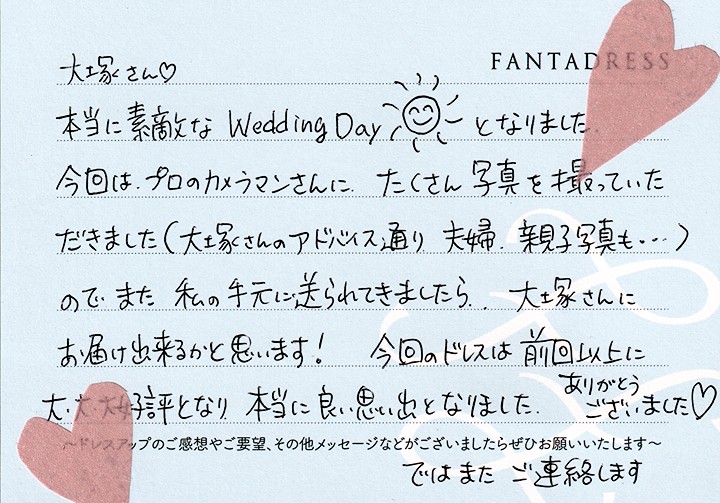 FANTADRESS
大塚さん♡
本当に素敵な Wedding Day となりました.
今回は、プロのカメラマンさんに、たくさん写真を撮っていた
だきました(大塚さんのアドバイス通り、夫婦、親子写真も・・・)
ので、また私の手元に送られてきましたら、、大塚さんに
お届け出来るかと思います! 今回のドレスは前回以上に
大・大・大好評となり、本当に良い思い出となりました. ありがとう
ございました♡
〜ドレスアップのご感想やご要望、その他メッセージなどがございましたらぜひお願いいたします〜
ではまたご連絡します